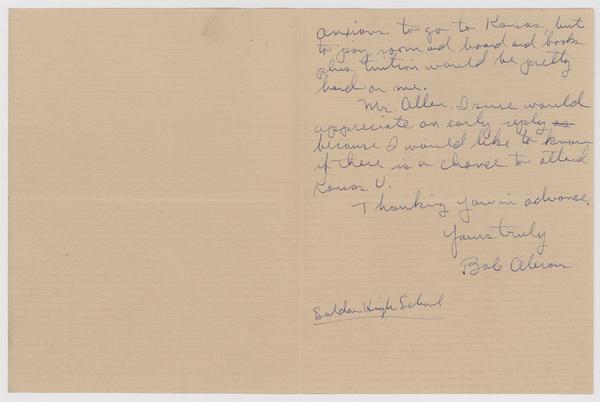 anxious to go to Kansas, but
to pay room ad board ad books
plus tuition would be pretty
hard on me.
Mr. Allen, I sure would
appreciate an early reply as
because I would like to know
if there is a chance to attend
Kansas U.
Thanking you in advance.
Yours truly
Bob
High School